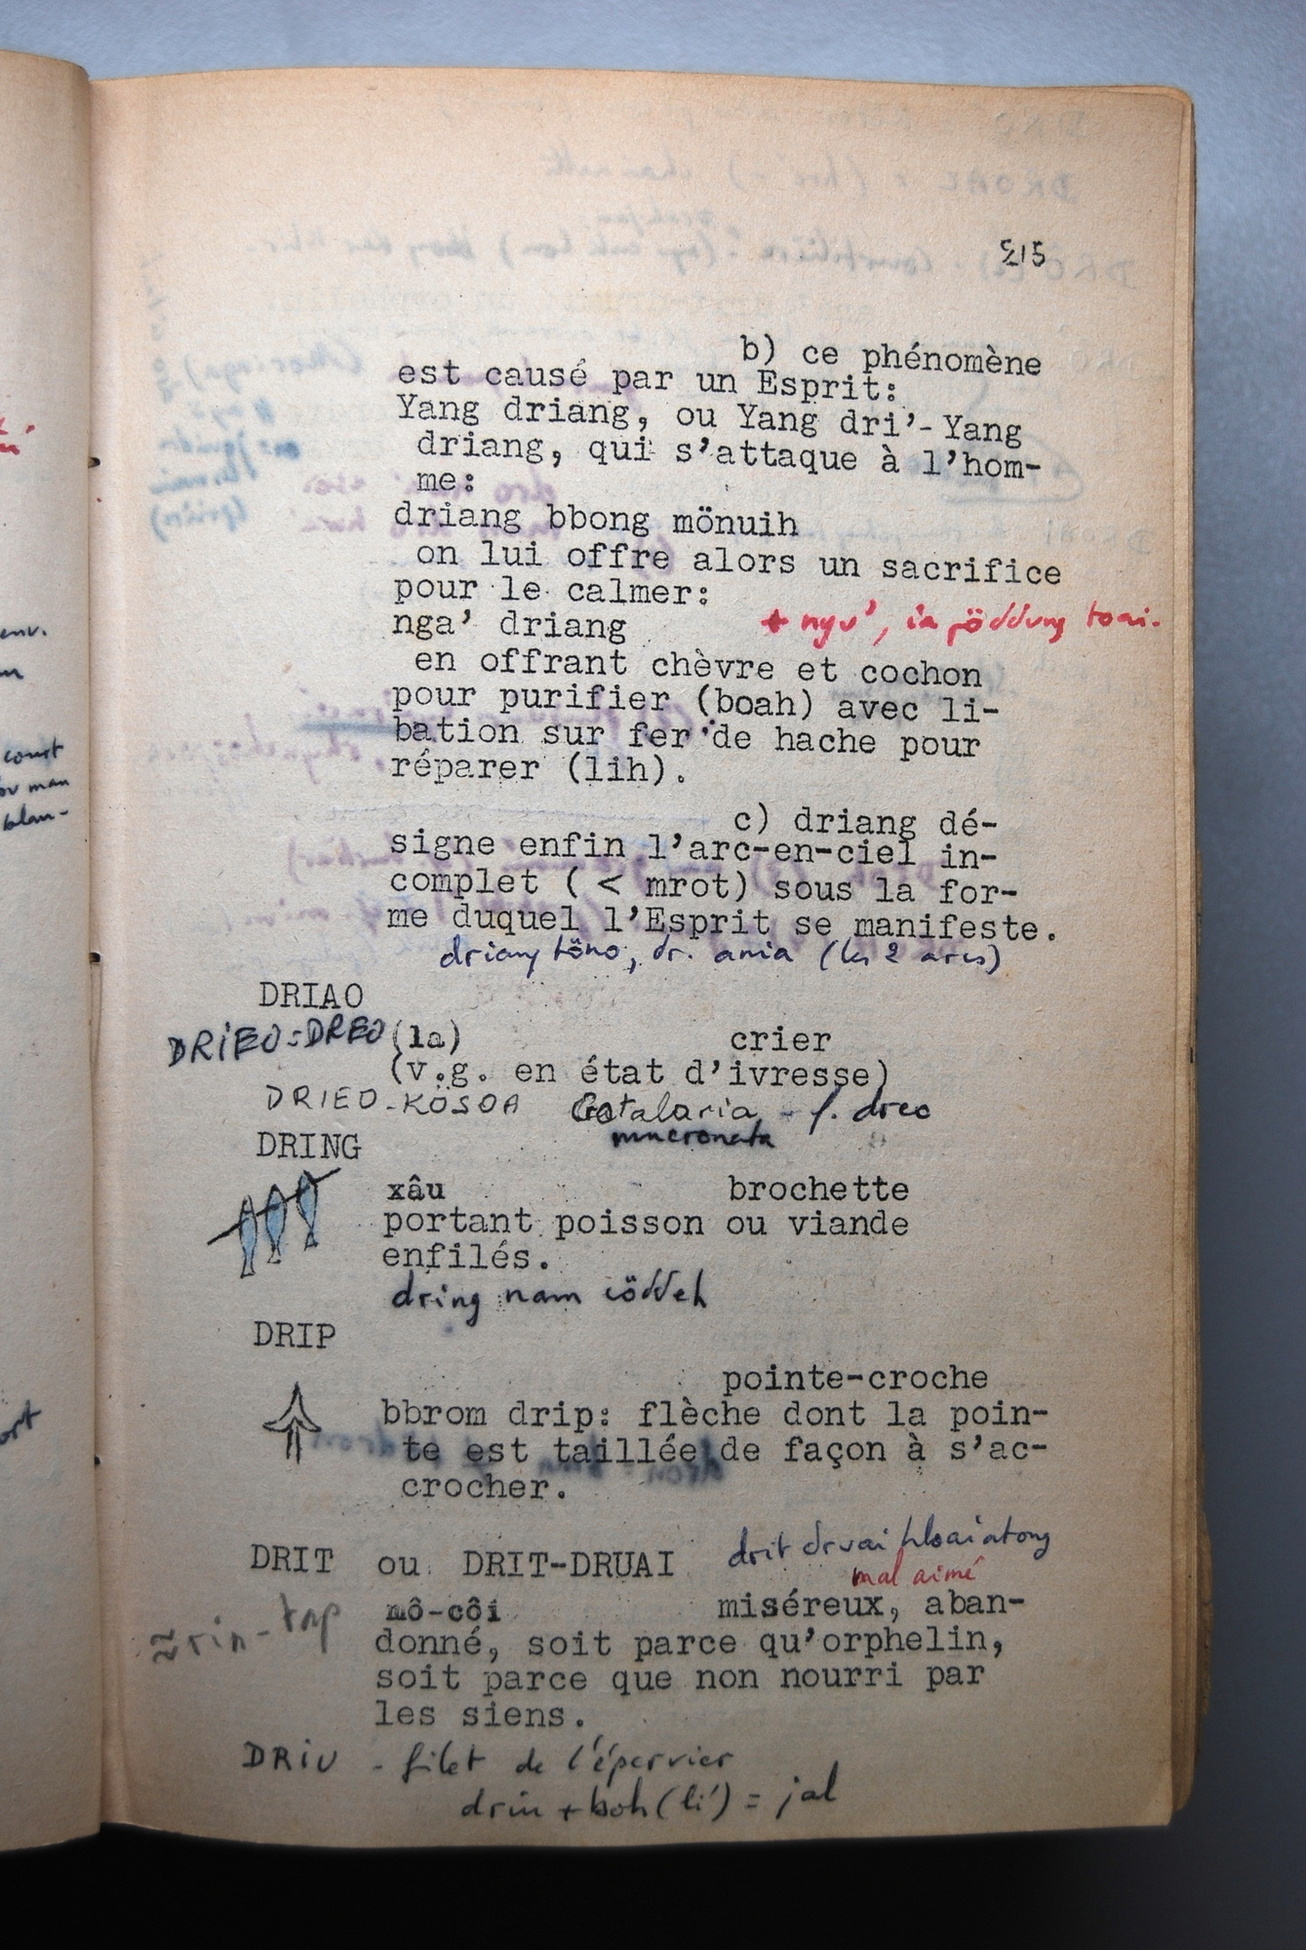 215
b) ce phénomène
est causé par un Esprit:
Yang driang, ou Yang dri'-Yang
driang, qui s'attaque à l'hom-
me:
driang bbong mönuih
on lui offre alors un sacrifice
pour le calmer:
nga' driang + ngu', ia pöddung toai.
en offrant chèvre et cochon
pour purifier (boah) avec li-
bation sur fer de hache pour
réparer (lih).
c) driang dé-
signe enfin l'arc-en-ciel in-
complet ( < mrot) sous la for-
me duquel l'Esprit se manifeste.
driang töno, dr. ania (les 2 arcs)
DRIAO
DRIEO = DREO (la) crier
(v.g. en état d'ivresse)
DRIEO-KÖSOA Crotalaria - f. dreo
mucronata
DRING
xâu brochette
portant poisson ou viande
enfilés.
dring nam cöddeh
DRIP
pointe-croche
bbrom drip: flèche dont la poin-
te est taillée de façon à s'ac-
crocher.
DRIT ou DRIT-DRUAI drit druai
mal aimé
≈ rin-tap mô-côi miséreux, aban-
donné, soit parce qu'orphelin,
soit parce que non nourri par
les siens.
DRIU - filet de l'épervier
driu + boh (li') = jal